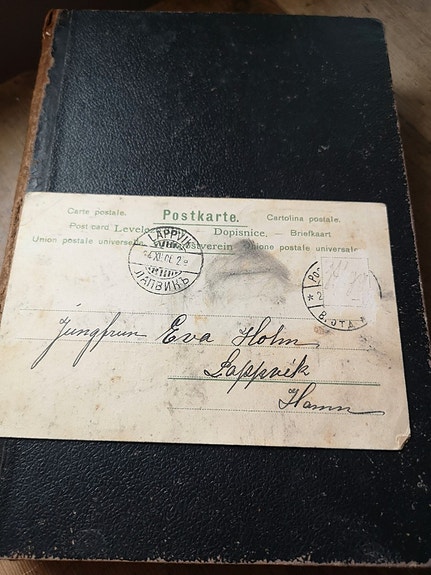 Carte postale. Postkarte. Cartolina postale.
Post card Levelező Dopisnice. — Briefkaart
Union postale universelle Weltpostverein Unione postale universale
LAPPVIK
4.XI.01. 2
ЛАППВИКЪ
В. ОТД.
Jungfrun Eva Holm
Lappvik
Hamn